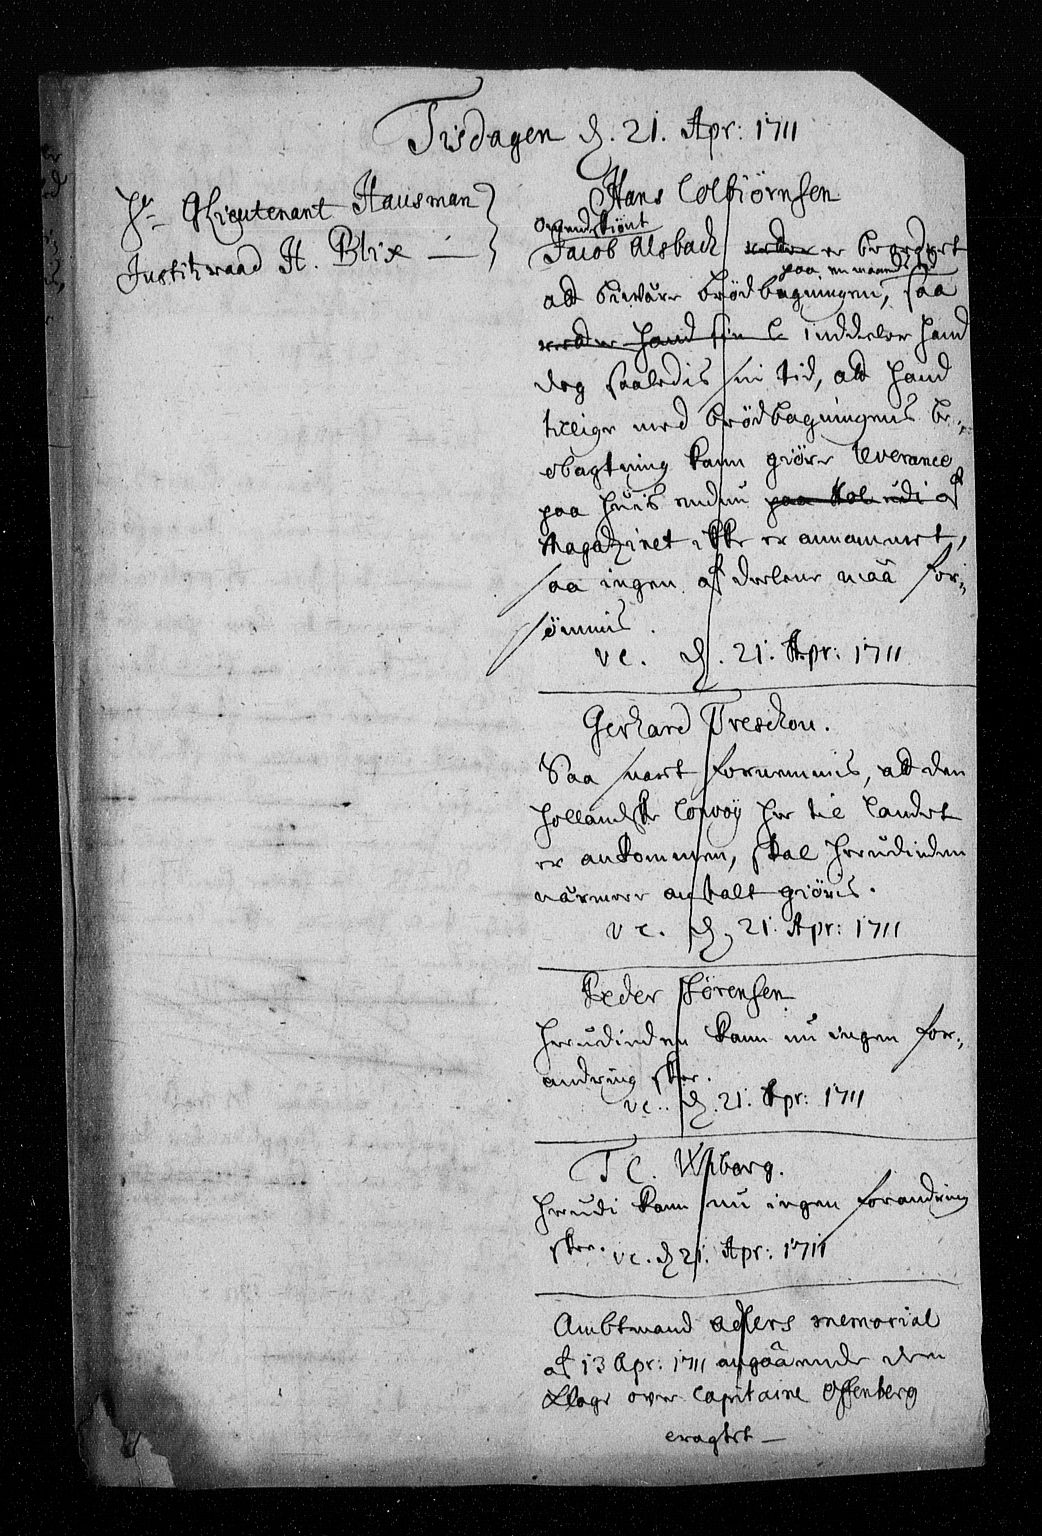 Tisdagen d. 21. Apr: 1711
Hr. GLieutenant Hausman
Justitzraad H. Blix —
Hans Colbiörnsen
Omendskiönt
Jacob Alsbach er beordret
paa en maaneds tid
att bivære brödbagningen, saa
inddeler hand
dog saaledis sin tid, att hand
tillige med brödbagningens be-
obagtning kann giöre leverance
paa hvis endnu udi
Magazinet ikke er annammet,
saa ingen af deelene maa for-
sömmis.
vc. d. 21. Apr: 1711
Gerhard Treschou.
Saa snart fornemmis, att den
hollandske Convoy her til landet
er ankommen, skal herudinden
nærmere anstalt giöris.
vc. d. 21. Apr: 1711
Peder Sörensen
herudinden kann nu ingen for-
andring skee.
vc. d. 21. Apr: 1711
T C. Wiborg.
herudi kann nu ingen forandring
skee. vc. d. 21. Apr: 1711
Ambtmand adlers memorial
af 13 Apr: 1711 angaaende den
klage over Capitaine Offenberg
eragtet —